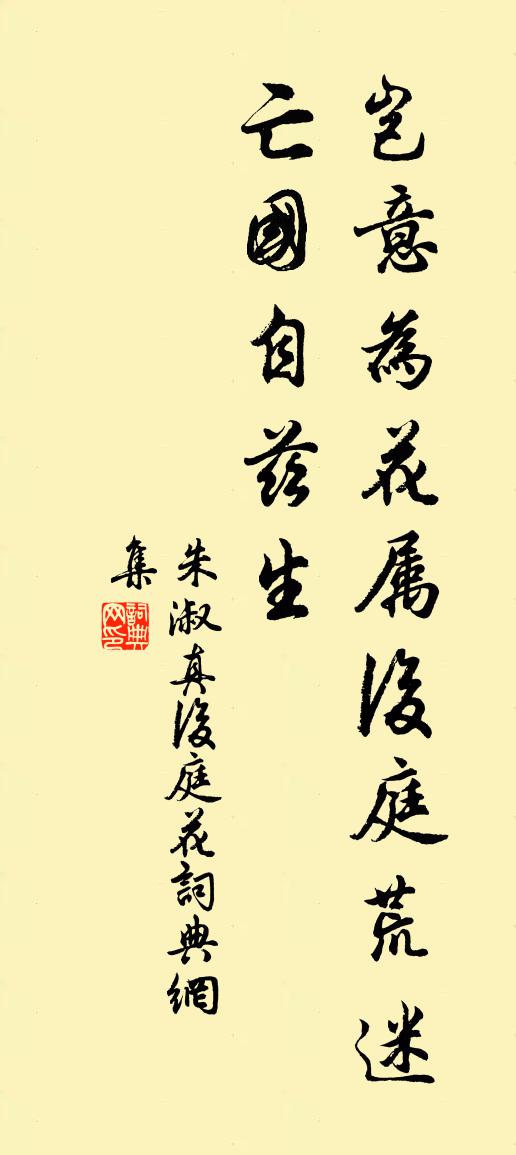 岂意為花属後庭荒迷
亡國自兹生
朱淑真後庭花詞典網
集
詞典
网印